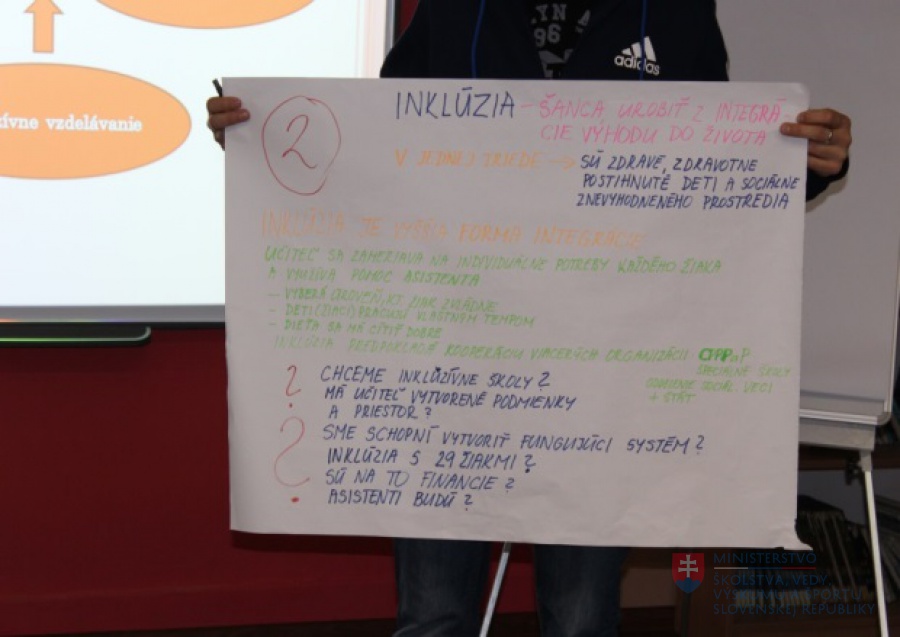 LYN
96
adidas
ívne vzdelávanie
2
INKLÚZIA - ŠANCA UROBIŤ Z INTEGRÁ-
CIE VÝHODU DO ŽIVOTA
V JEDNEJ TRIEDE → SÚ ZDRAVÉ, ZDRAVOTNE
POSTIHNUTÉ DETI A SOCIÁLNE
ZNEVÝHODNENÉHO PROSTREDIA
INKLÚZIA JE VYŠŠIA FORMA INTEGRÁCIE
UČITEĽ SA ZAMERIAVA NA INDIVIDUÁLNE POTREBY KAŽDÉHO ŽIAKA
A VYUŽÍVA POMOC ASISTENTA
- VYBERÁ ÚROVEŇ, KT. ŽIAK ZVLÁDNE
- DETI (ŽIACI) PRACUJÚ VLASTNÝM TEMPOM
- DIEŤA SA MÁ CÍTIŤ DOBRE
INKLÚZIA PREDPOKLADÁ KOOPERÁCIU VIACERÝCH ORGANIZÁCIÍ: CPPPaP
ŠPECIÁLNE ŠKOLY
SOCIÁL. VECÍ
+ ŠTÁT
? CHCEME INKLÚZÍVNE ŠKOLY?
MÁ UČITEĽ VYTVORENÉ PODMIENKY
A PRIESTOR?
? SME SCHOPNÍ VYTVORIŤ FUNGUJÚCI SYSTÉM?
INKLÚZIA S 29 ŽIAKMI?
SÚ NA TO FINANCIE?
ASISTENTI BUDÚ?
MINISTERSTVO
ŠKOLSTVA, VEDY,
VÝSKUMU A ŠPORTU
SLOVENSKEJ REPUBLIKY